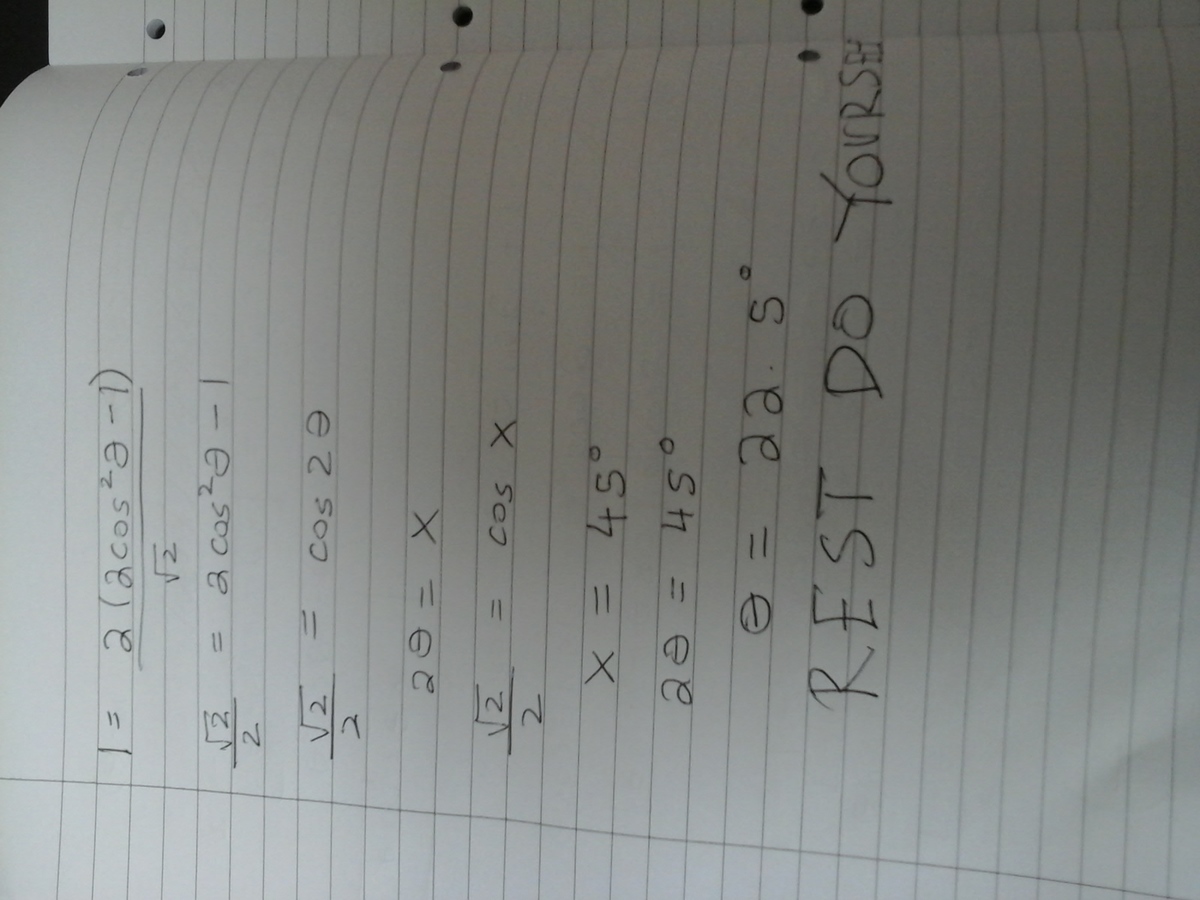 1 = 2(2cos²θ-1)/√2
√2/2 = 2cos²θ-1
√2/2 = cos 2θ
2θ = x
√2/2 = cos x
x = 45°
2θ = 45°
θ = 22.5°
REST DO YOURSELF